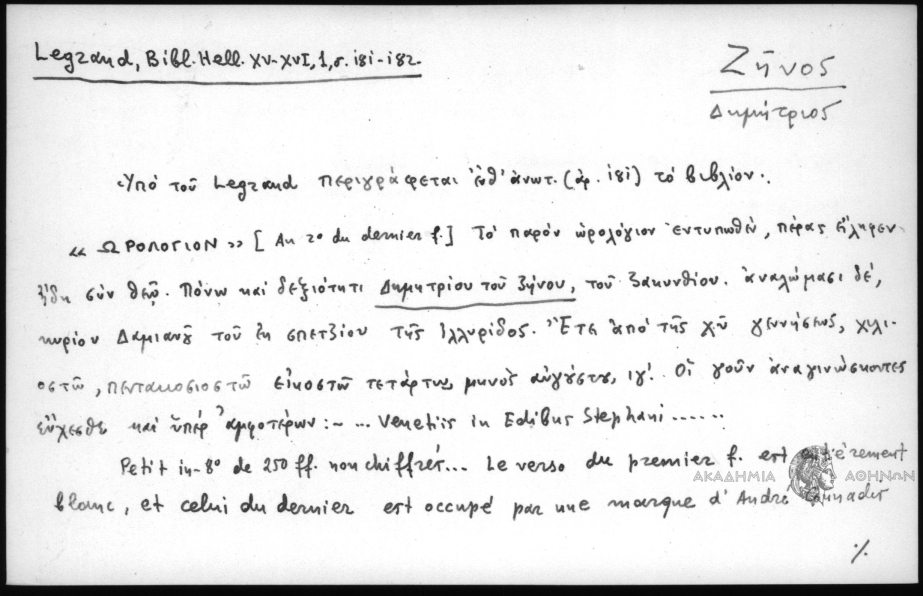 Legrand, Bibl. Hell. XV-XVI, 1, σ. 181-182.
Ζῆνος
Δημήτριος
Ὑπό τοῦ Legrand περιγράφεται ἐνθ' ἀνωτ. (ἀρ. 181) τό βιβλίον.
« ΩΡΟΛΟΓΙΟΝ » [Au 2º du dernier f.] Τό παρόν ὡρολόγιον ἐντυπωθέν, πέρας εἴληφεν
ἤδη σύν θεῷ. Πόνω καί δεξιότητι Δημητρίου τοῦ Ζήνου, τοῦ Ζακυνθίου. ἀναλώμασι δέ,
κυρίου Δαμιανοῦ τοῦ ἐκ σπετζίου τῆς Ἰλλυρίδος. Ἔτει ἀπό τῆς χῦ γεννήσεως, χιλι-
οστῶ, πεντακοσιοστῶ εἰκοστῶ τετάρτω μηνός αὐγούστου, ιγ'. Οἱ γοῦν ἀναγινώσκοντες
εὔχεσθε καί ὑπέρ ἀμφοτέρων :~ ... Venetiis in Edibus Stephani ......
Petit in-8º de 250 ff. non chiffrés... Le verso du premier f. est entièrement
blanc, et celui du dernier est occupé par une marque d'André
ΑΚΑΔΗΜΙΑ ΑΘΗΝΩΝ
%